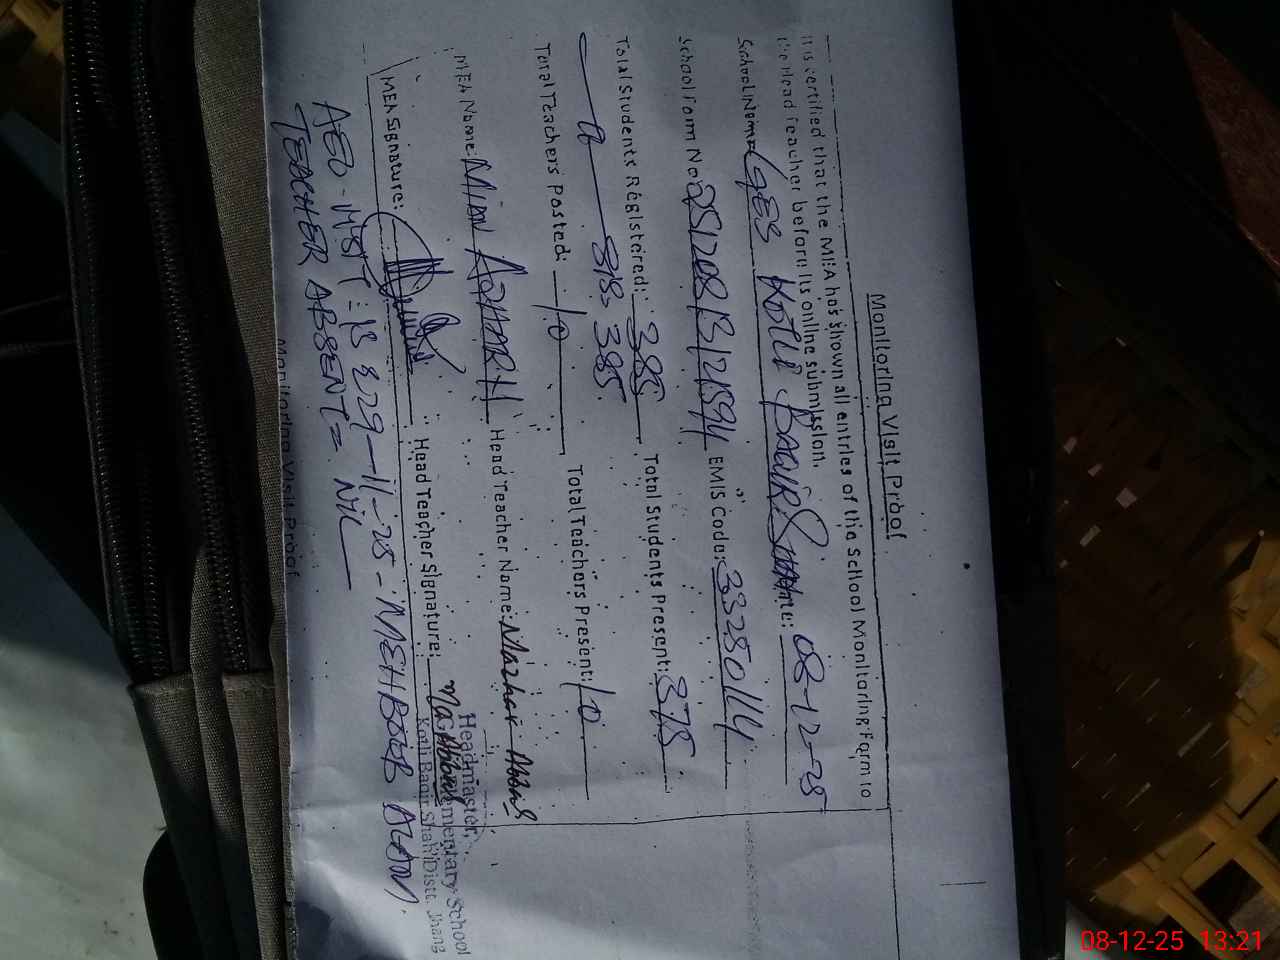 Monitoring Visit Proof
It is certified that the MEA has shown all entries of the School Monitoring Form to
the Head Teacher before its online submission.
School Name: GES Kotli Baqir Shah Time: 08-12-25
School Form No: EMIS Code: 33230114
Total Students Registered: 385 Total Students Present: 375
385
Total Teachers Posted: 10 Total Teachers Present: 10
MEA Name: MIAN AZHAR H Head Teacher Name: Mazhar Abbas
MEA Signature: Head Teacher Signature:
Headmaster,
Elementary School
Kotli Baqir Shah Distt. Jhang
AEO - VISIT = 29-11-25 - MEHBOOB ALAM.
TEACHER ABSENT = NIL
Monitoring Visit Proof
08-12-25 13:21